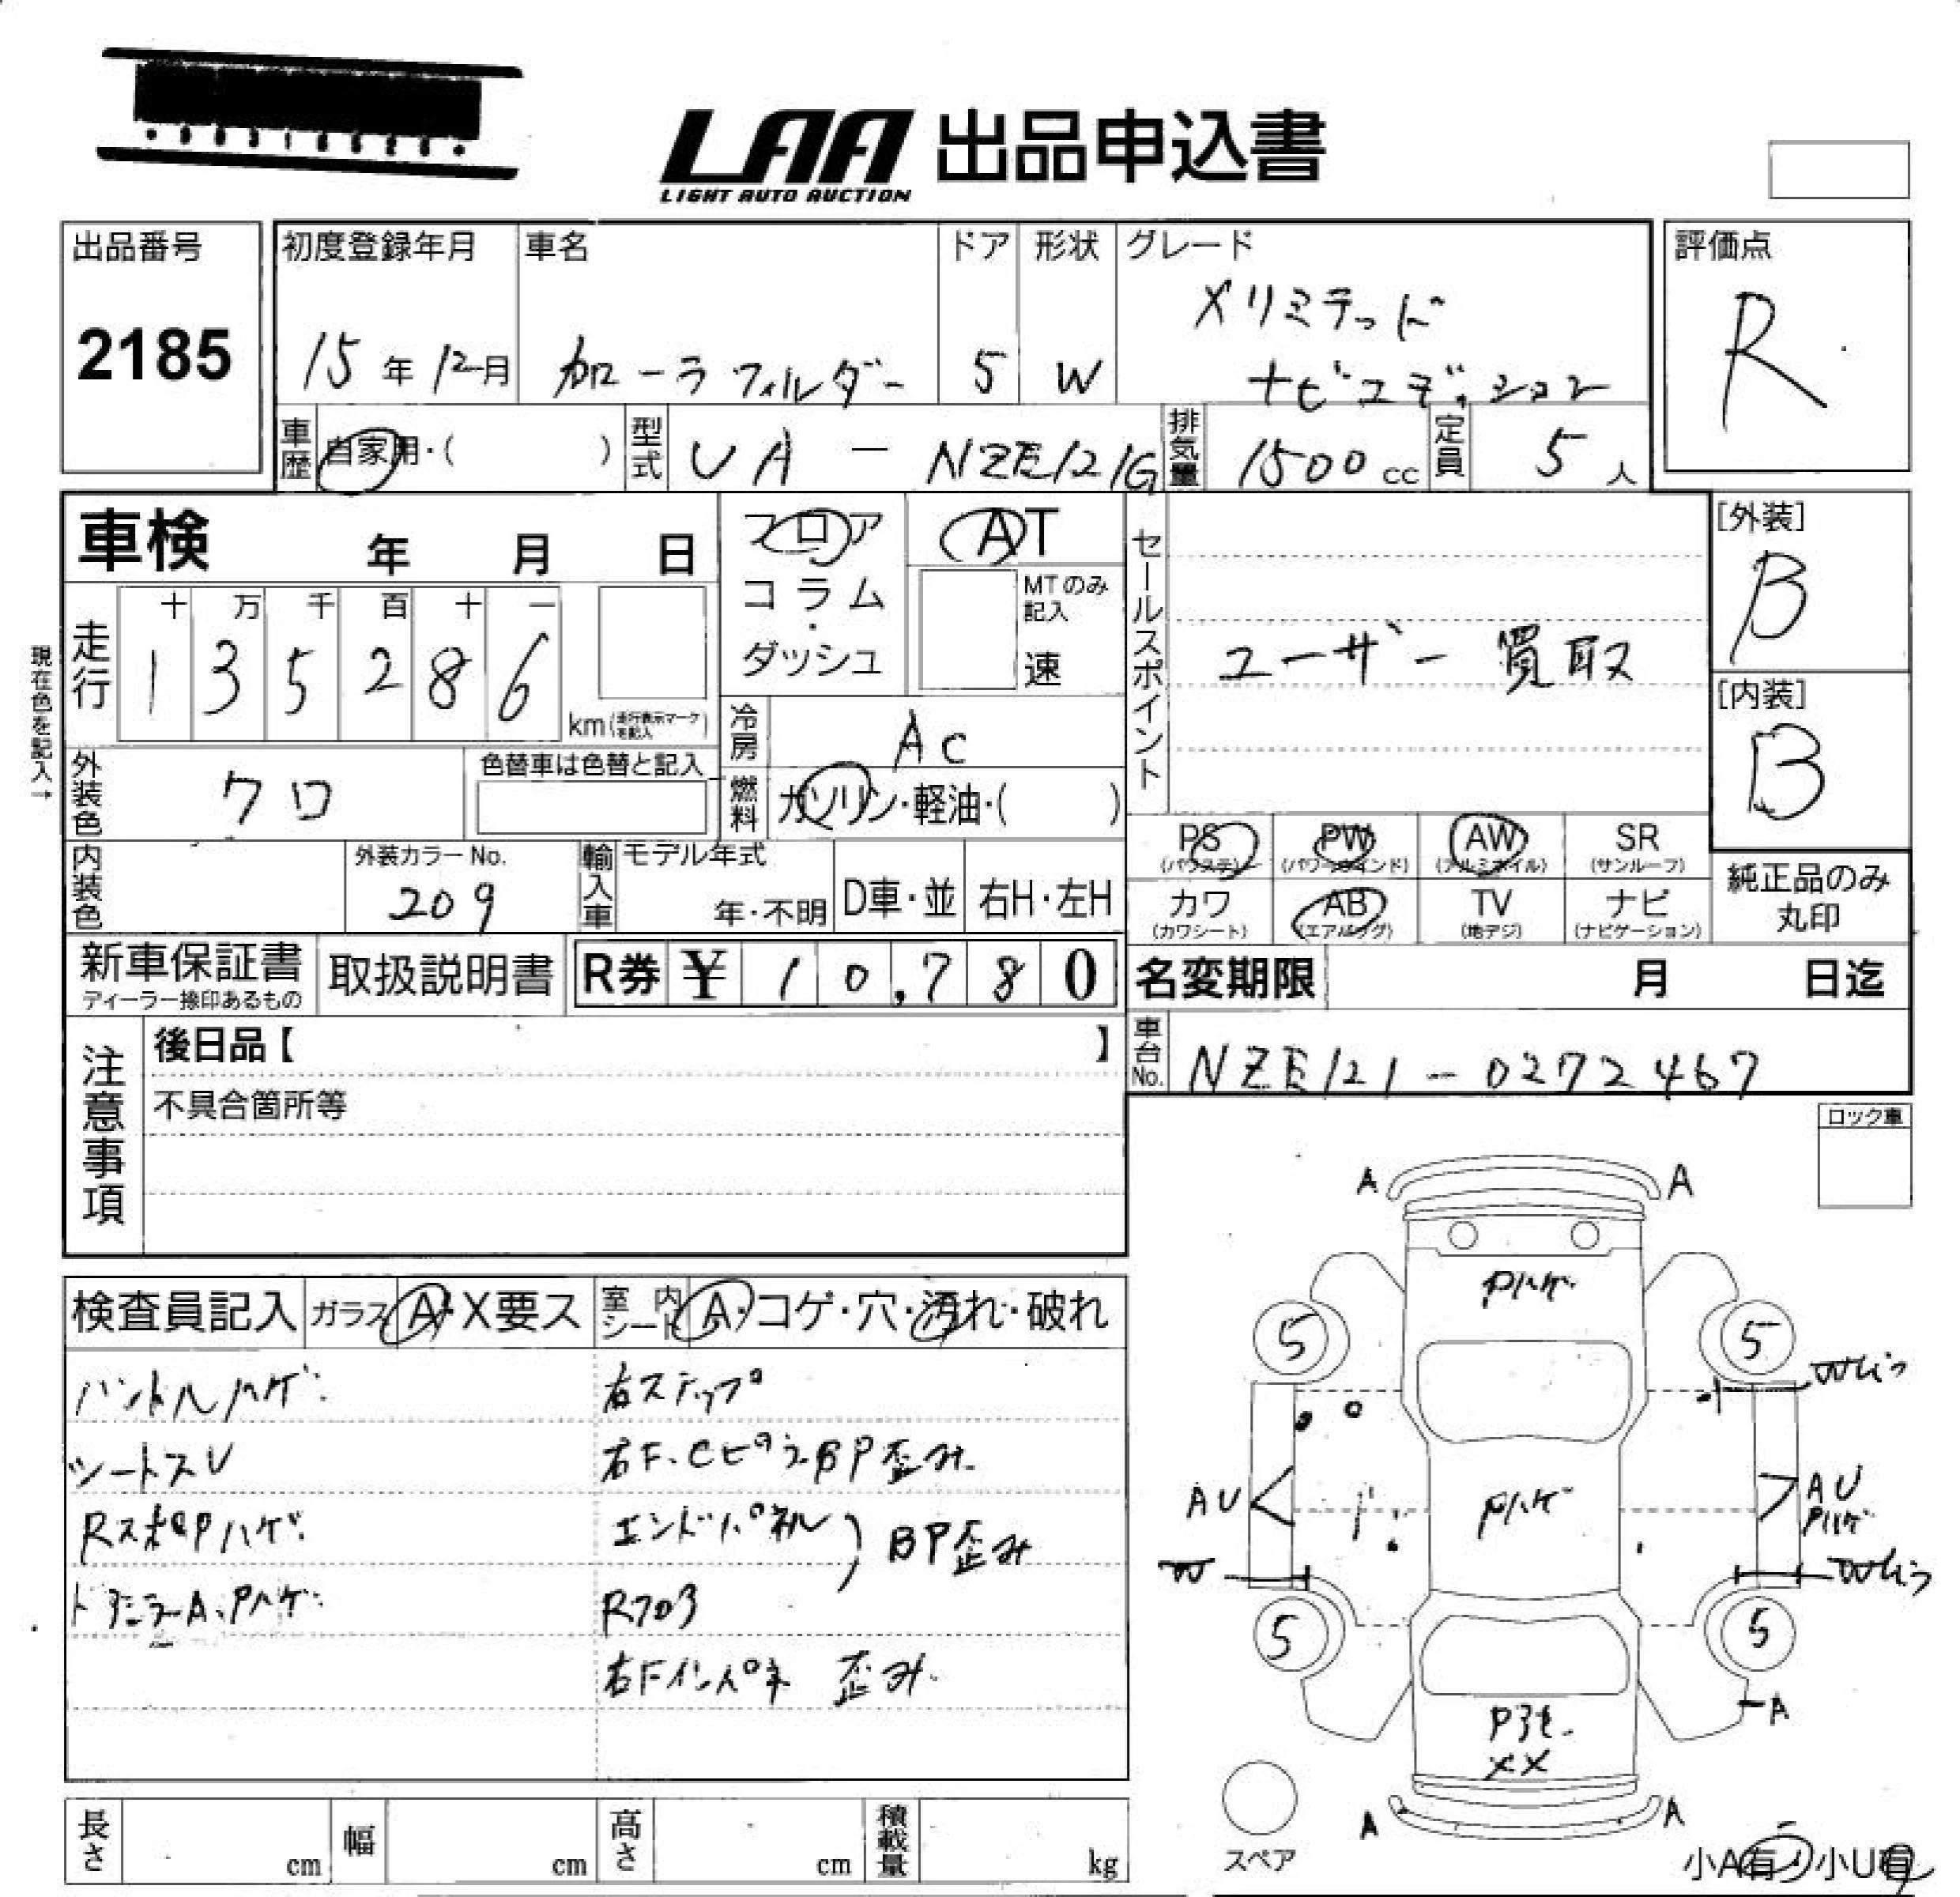 LAA 出品申込書
LIGHT AUTO AUCTION
出品番号
2185
初度登録年月
15年12月
車名
カローラフィルダー
ドア
5
形状
W
グレード
Xリミテッド
ナビエディション
評価点
R
車歴
自家用・( )
型式
UA - NZE121G
排気量
1500cc
定員
5人
車検 年 月 日
フロア
コラム
・
ダッシュ
AT
MTのみ記入
速
セールスポイント
ユーザー買取
[外装]
B
[内装]
B
現在色を記入→
走行
十 万 千 百 十 一
1 3 5 2 8 6
km(走行表示マークを記入)
冷房
AC
燃料
ガソリン・軽油・( )
外装色
クロ
色替車は色替と記入
内装色
外装カラーNo.
209
輸入車
モデル年式
年・不明
D車・並
右H・左H
PS
(パワステ)
PW
(パワーウインド)
AW
(アルミホイル)
SR
(サンルーフ)
カワ
(カワシート)
AB
(エアバッグ)
TV
(地デジ)
ナビ
(ナビゲーション)
純正品のみ
丸印
新車保証書
ディーラー捺印あるもの
取扱説明書
R券 ¥ 10,780
名変期限 月 日迄
注意事項
後日品【 】
不具合箇所等
車台No.
NZE121-0272467
ロック車
検査員記入
ガラス A・X要ス
室内シート A・コゲ・穴・汚れ・破れ
ハンドルハゲ
シートスレ
RスポPハゲ
ドアミラーA、Pハゲ
右ステップ
右F、CピラーBP歪み
エンドパネル
R フロア
BP歪み
右Fインパネ 歪み
A
A
Pハゲ
5
5
AU
Pハゲ
AU
Pハゲ
W
5
5
A
XX
A
A
スペア
小A有・小U有
長さ cm
幅 cm
高さ cm
積載量 kg